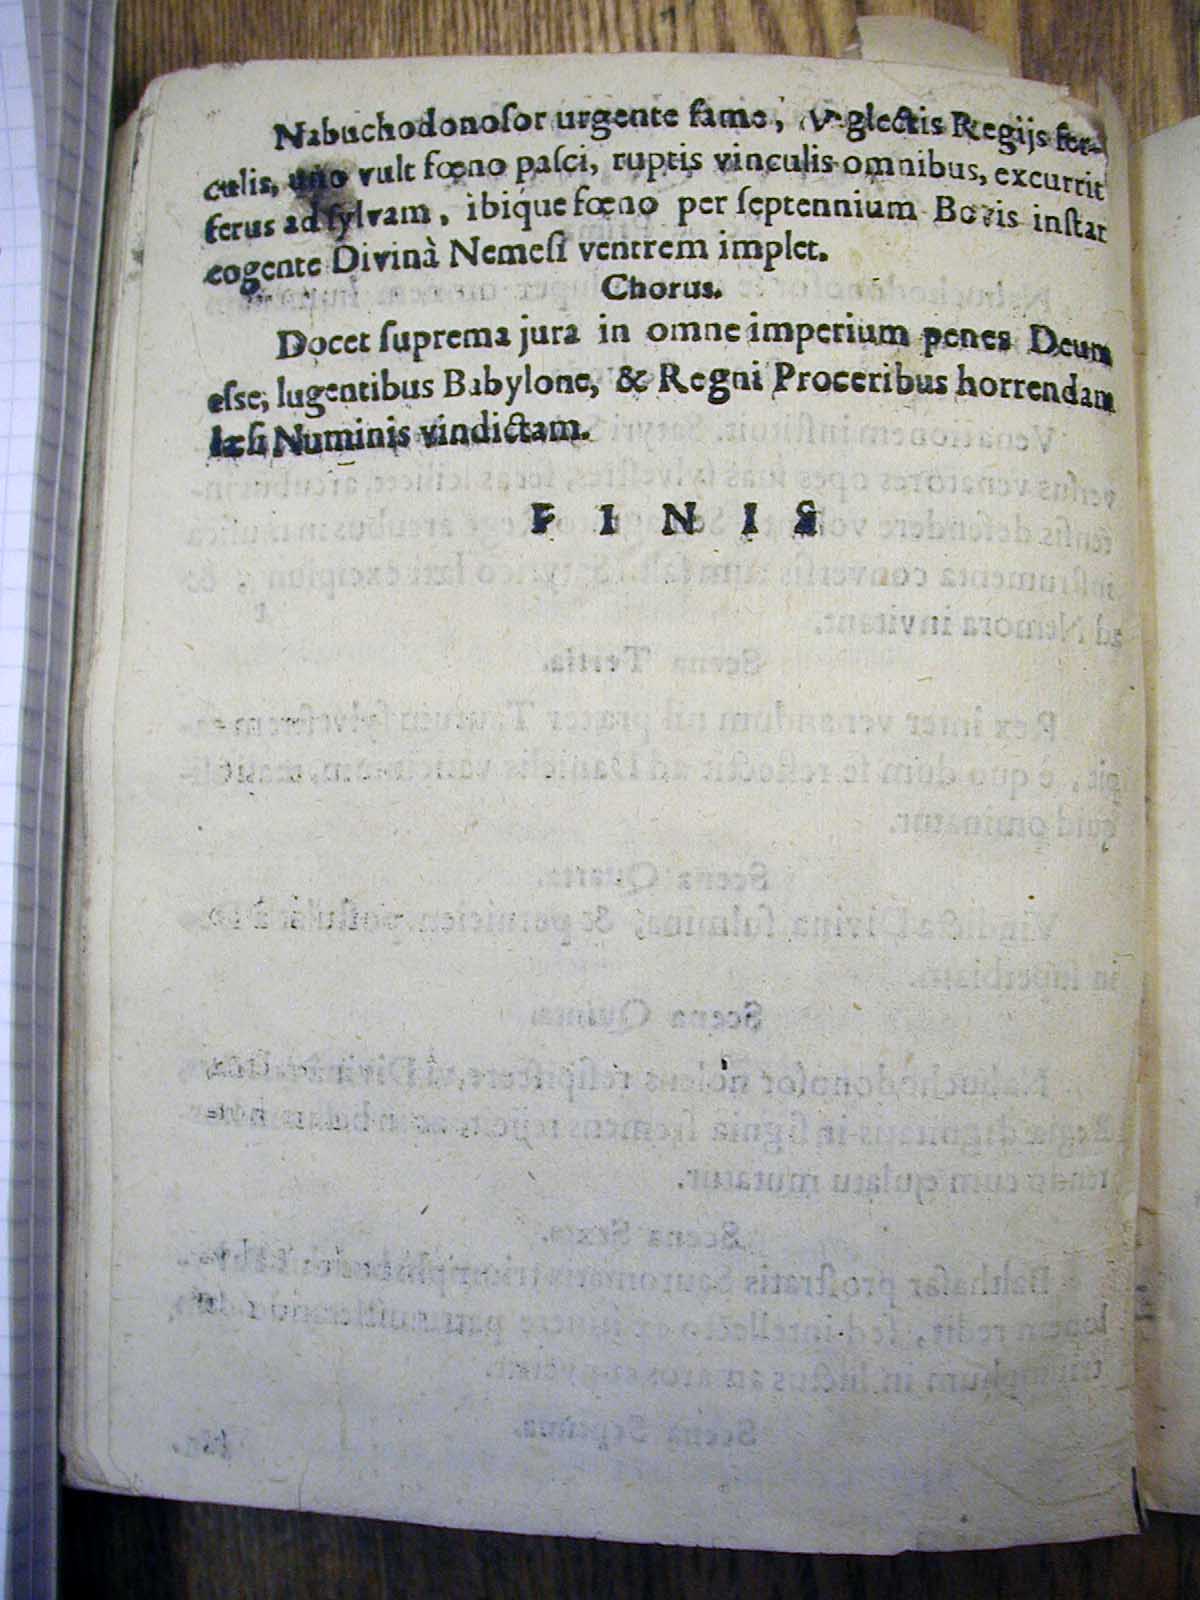 Nabuchodonoſor urgente fame, neglectis Regijs fer-
culis, uno vult fœno paſci, ruptis vinculis omnibus, excurrit
ferus ad ſylvam, ibique fœno per ſeptennium Bovis inſtar
cogente Divinâ Nemeſi ventrem implet.
Chorus.
Docet ſuprema jura in omne imperium penes Deum
eſse, lugentibus Babylone, & Regni Proceribus horrendam
læſi Numinis vindictam.
F I N I S